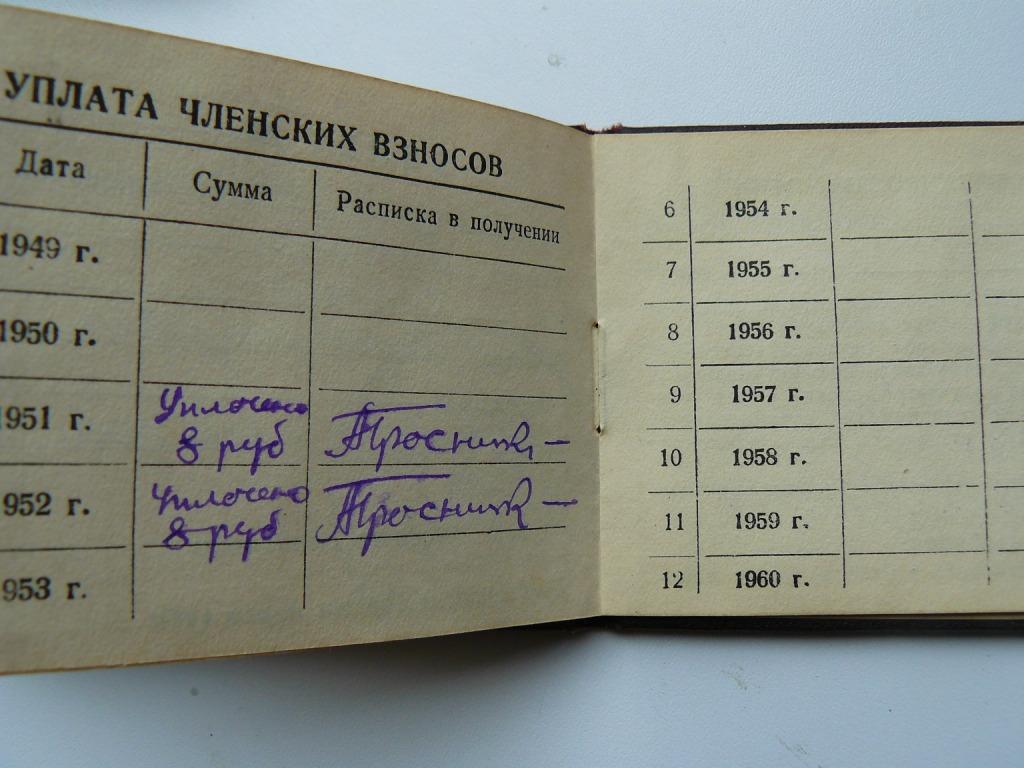 УПЛАТА ЧЛЕНСКИХ ВЗНОСОВ
Дата Сумма Расписка в получении
1949 г.
1950 г.
1951 г. Уплочено
8 руб
1952 г. Уплочено
8 руб
1953 г.
6 1954 г.
7 1955 г.
8 1956 г.
9 1957 г.
10 1958 г.
11 1959 г.
12 1960 г.